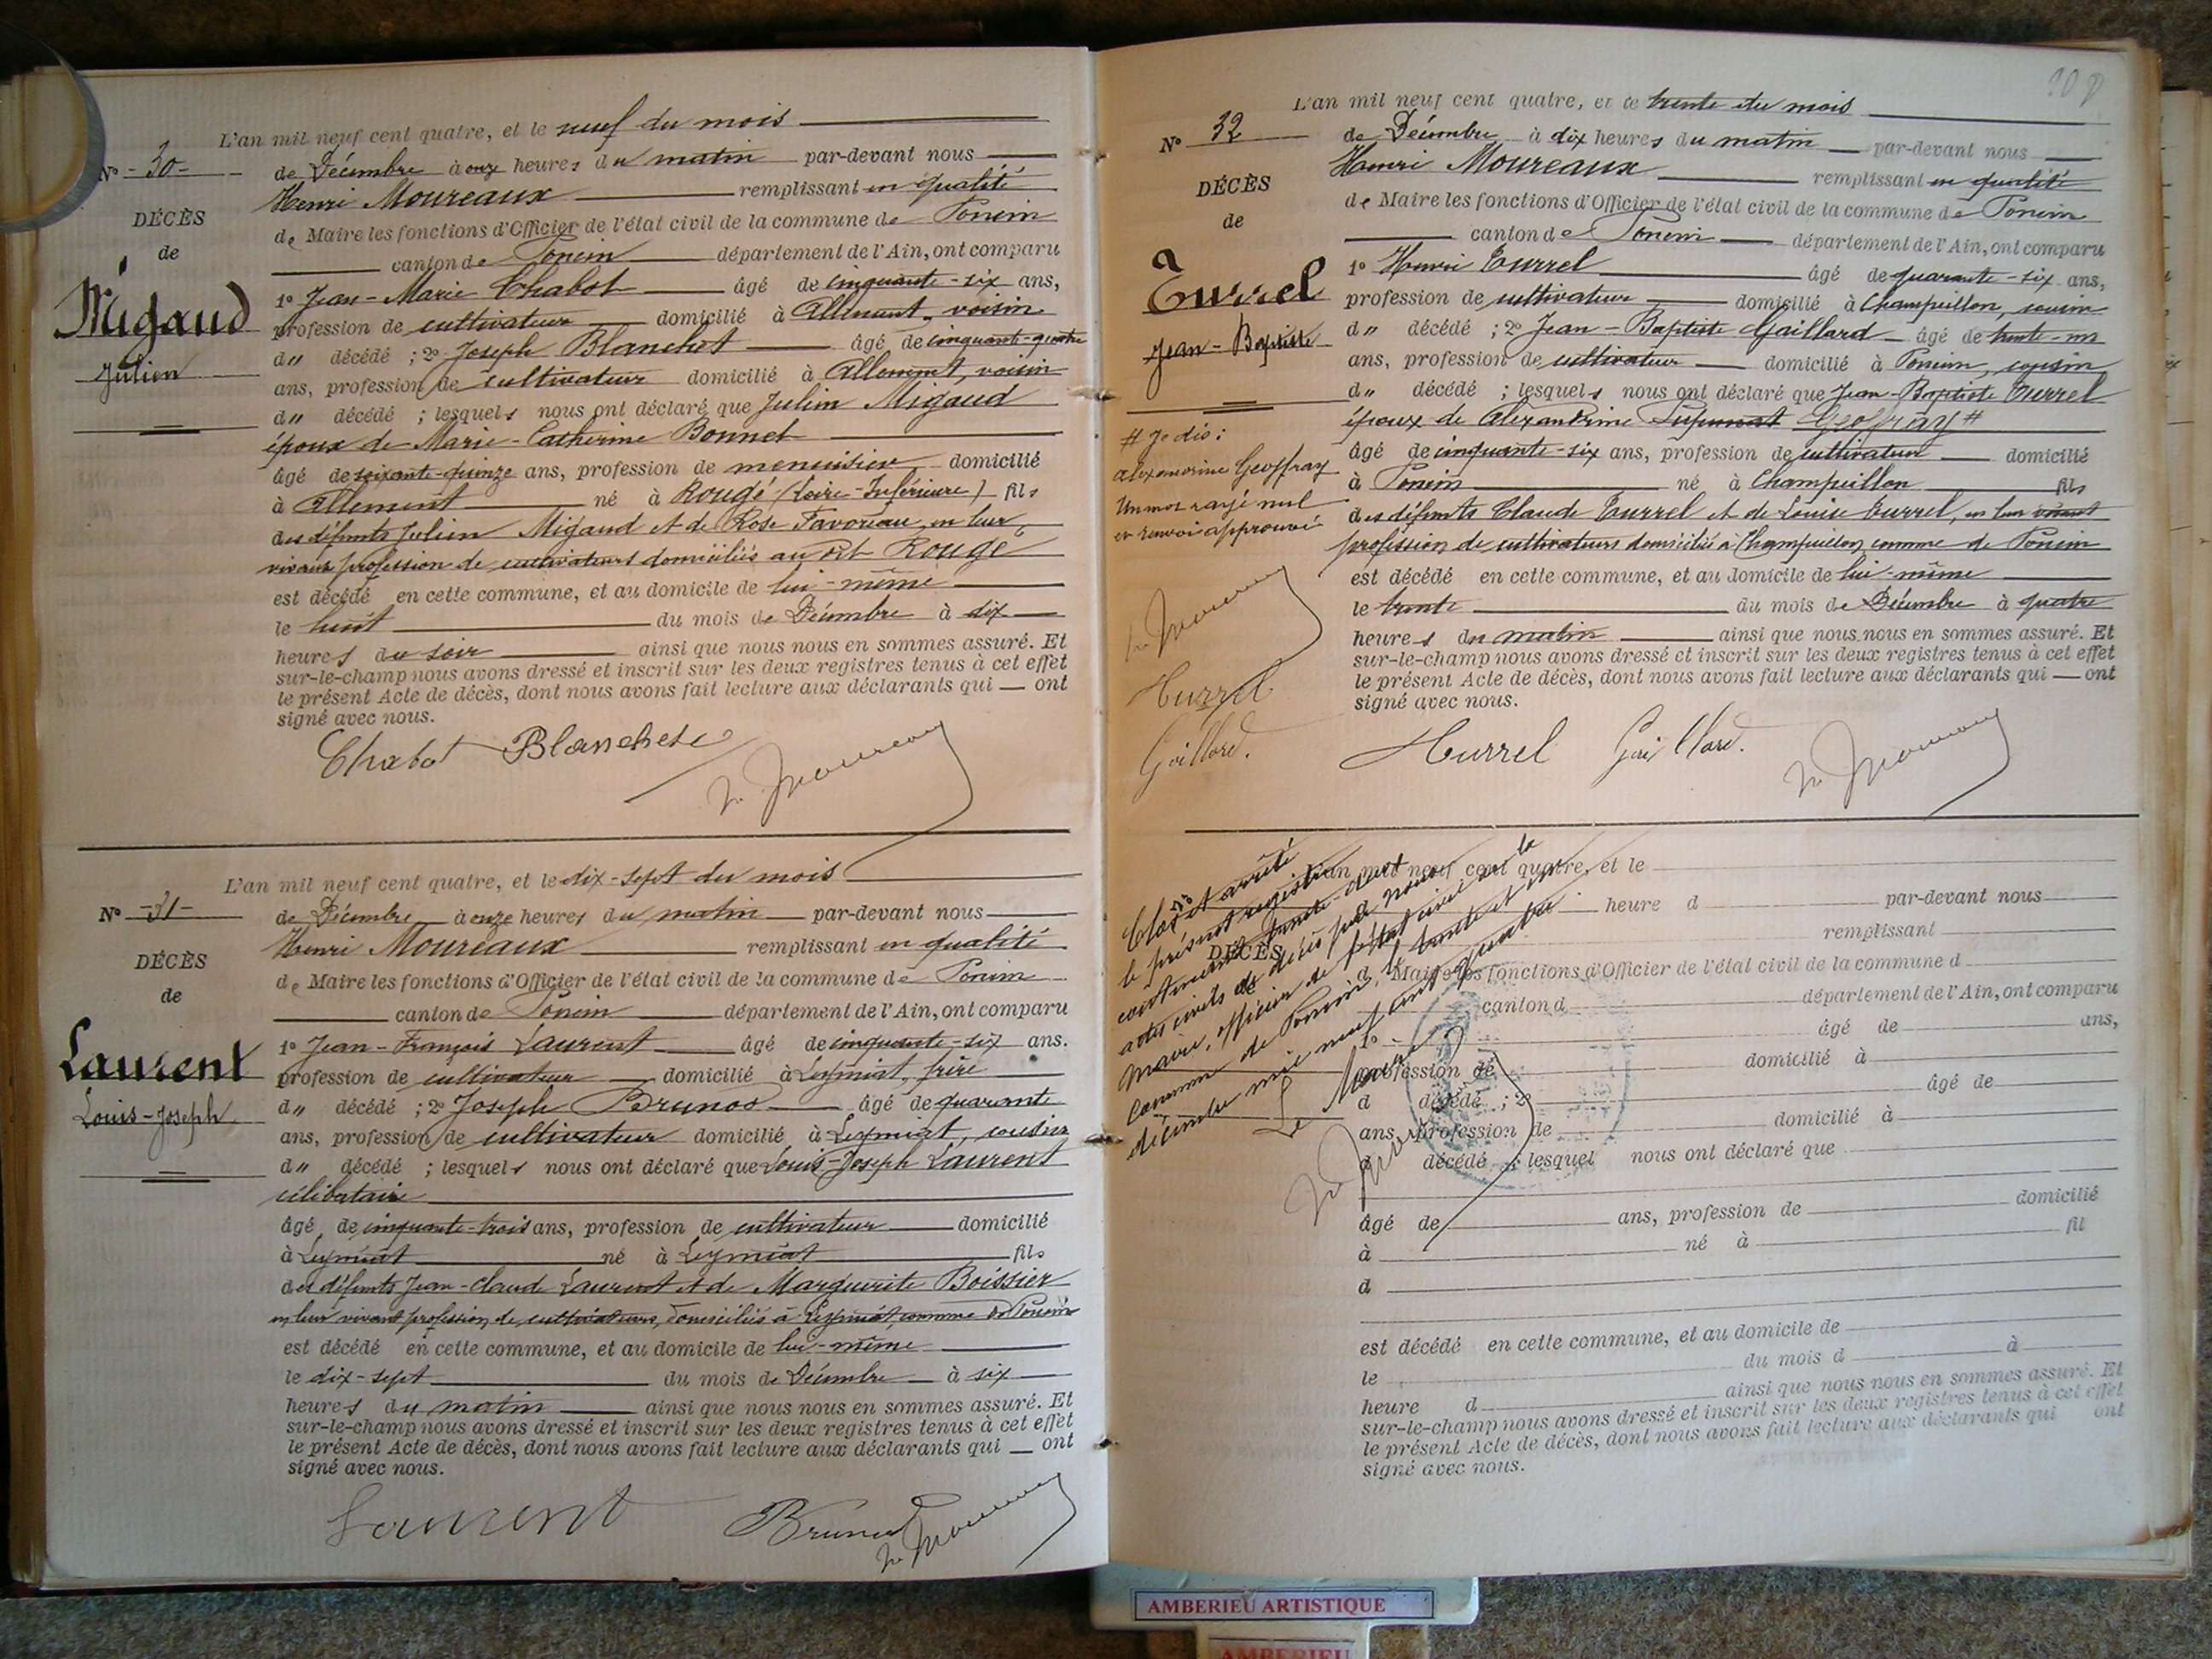 L'an mil neuf cent quatre, et le neuf du mois
N° - 30 -
de Décembre à onze heures du matin par-devant nous
Henri Moureaux remplissant en qualité
DÉCÈS
de Maire les fonctions d'Officier de l'état civil de la commune de Poncin
de
canton de Poncin département de l'Ain, ont comparu
1° Jean-Marie Chabot âgé de cinquante-six ans,
Migaud
profession de cultivateur domicilié à Allement, voisin
d" décédé ; 2° Joseph Blanchet âgé de cinquante-quatre
Julien
ans, profession de cultivateur domicilié à Allement, voisin
d" décédé ; lesquels nous ont déclaré que Julien Migaud
époux de Marie-Catherine Bonnet
âgé de soixante-quinze ans, profession de menuisier domicilié
à Allement né à Rougé (Loire-Inférieure) fils
des défunts Julien Migaud et de Rose Favoreau, en leur
vivant profession de cultivateurs domiciliés au dit Rougé
est décédé en cette commune, et au domicile de lui-même
le huit du mois de Décembre à dix
heures du soir ainsi que nous nous en sommes assuré. Et
sur-le-champ nous avons dressé et inscrit sur les deux registres tenus à cet effet
le présent Acte de décès, dont nous avons fait lecture aux déclarants qui — ont
signé avec nous.
Chabot Blanchet
L'an mil neuf cent quatre, et le dix-sept du mois
N° - 31 -
de Décembre à onze heures du matin par-devant nous
Henri Moureaux remplissant en qualité
DÉCÈS
de Maire les fonctions d'Officier de l'état civil de la commune de Poncin
de
canton de Poncin département de l'Ain, ont comparu
1° Jean-François Laurent âgé de cinquante-six ans.
Laurent
profession de cultivateur domicilié à Leymiat, frère
d" décédé ; 2° Joseph Brunod âgé de quarante
Louis-Joseph
ans, profession de cultivateur domicilié à Leymiat, cousin
d" décédé ; lesquels nous ont déclaré que Louis-Joseph Laurent
célibataire
âgé de cinquante-trois ans, profession de cultivateur domicilié
à Leymiat né à Leymiat fils
des défunts Jean-Claude Laurent et de Marguerite Boissier
en leur vivant profession de cultivateurs, domiciliés à Leymiat, commune de Poncin
est décédé en cette commune, et au domicile de lui-même
le dix-sept du mois de Décembre à six
heures du matin ainsi que nous nous en sommes assuré. Et
sur-le-champ nous avons dressé et inscrit sur les deux registres tenus à cet effet
le présent Acte de décès, dont nous avons fait lecture aux déclarants qui — ont
signé avec nous.
Laurent Brunod
L'an mil neuf cent quatre, et le trente du mois
N° 32
de Décembre à dix heures du matin par-devant nous
Henri Moureaux remplissant en qualité
DÉCÈS
de Maire les fonctions d'Officier de l'état civil de la commune de Poncin
de
canton de Poncin département de l'Ain, ont comparu
1° Henri Turrel âgé de quarante-six ans,
Turrel
profession de cultivateur domicilié à Champeillon, cousin
d" décédé ; 2° Jean-Baptiste Gaillard âgé de trente-un
Jean-Baptiste
ans, profession de cultivateur domicilié à Poncin, cousin
d" décédé ; lesquels nous ont déclaré que Jean-Baptiste Turrel
époux de Alexandrine Geoffray #
âgé de cinquante-six ans, profession de cultivateur domicilié
à Poncin né à Champeillon fils
des défunts Claude Turrel et de Louise Turrel, en leur vivant
profession de cultivateurs domiciliés à Champeillon commune de Poncin
est décédé en cette commune, et au domicile de lui-même
le trente du mois de Décembre à quatre
heures du matin ainsi que nous nous en sommes assuré. Et
sur-le-champ nous avons dressé et inscrit sur les deux registres tenus à cet effet
le présent Acte de décès, dont nous avons fait lecture aux déclarants qui — ont
signé avec nous.
# Je dis :
Alexandrine Geoffray
Un mot rayé nul
et renvoi approuvé
Turrel
Gaillard.
Turrel Gaillard.
Clos et arrêté
le présent registre
contenant trente-deux
actes civils de décès par nous
Maire, officier de l'état civil de la
commune de Poncin, le trente et un
décembre mil neuf cent quatre
Le Maire
L'an mil neuf cent quatre, et le
heure d par-devant nous
remplissant
DÉCÈS
d Maire les fonctions d'Officier de l'état civil de la commune d
canton d département de l'Ain, ont comparu
1° âgé de ans,
profession de domicilié à
d décédé ; 2° âgé de
ans, profession de domicilié à
d décédé ; lesquel nous ont déclaré que
âgé de ans, profession de domicilié
à né à fil
d
est décédé en cette commune, et au domicile de
le du mois d à
heure d ainsi que nous nous en sommes assuré. Et
sur-le-champ nous avons dressé et inscrit sur les deux registres tenus à cet effet
le présent Acte de décès, dont nous avons fait lecture aux déclarants qui ont
signé avec nous.
AMBERIEU ARTISTIQUE
AMBERIEU